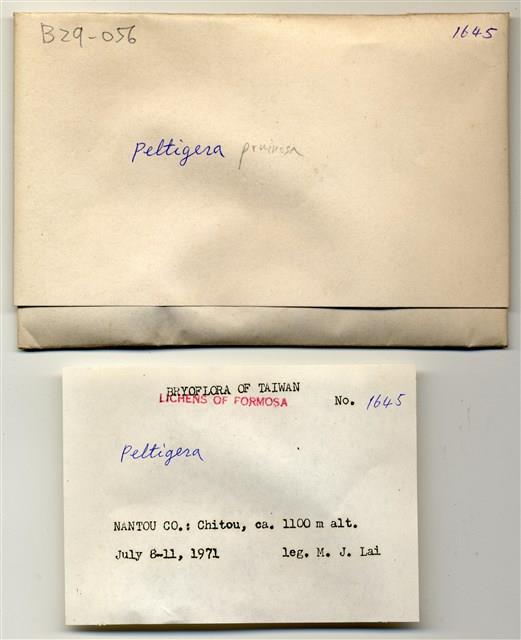 B29-056
1645
Peltigera pruinosa
BRYOFLORA OF TAIWAN
LICHENS OF FORMOSA
No. 1645
Peltigera
NANTOU CO.: Chitou, ca. 1100 m alt.
July 8-11, 1971 leg. M. J. Lai